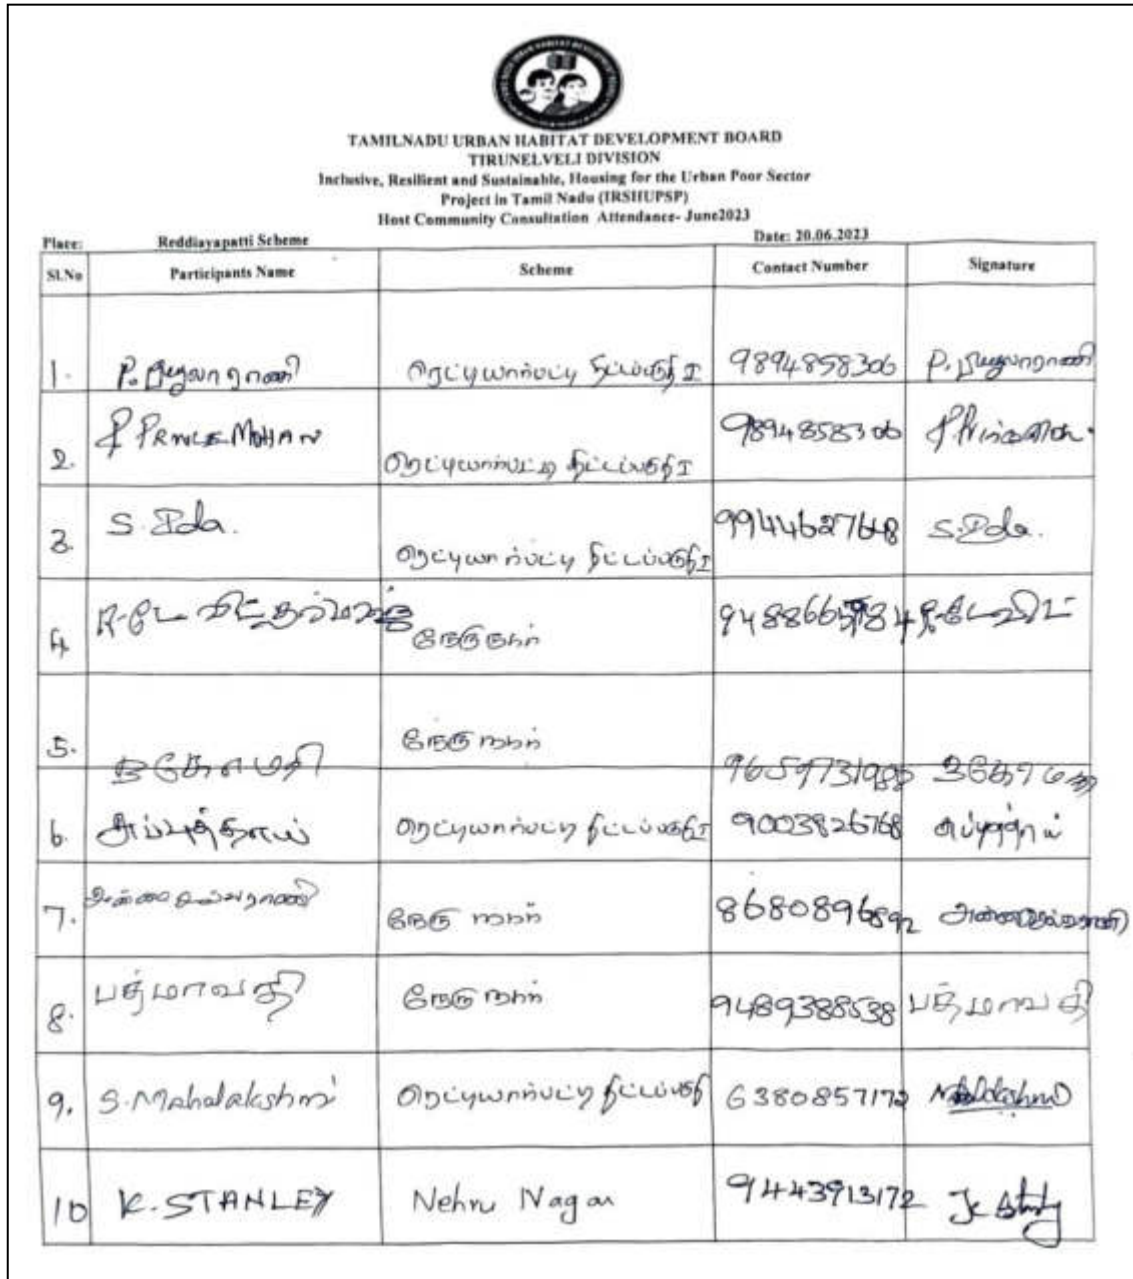 TAMILNADU URBAN HABITAT DEVELOPMENT BOARD
TIRUNELVELI DIVISION
Inclusive, Resilient and Sustainable, Housing for the Urban Poor Sector
Project in Tamil Nadu (IRSHUPSP)
Host Community Consultation Attendance- June2023
Place: Reddiayapatti Scheme Date: 20.06.2023
Sl.No Participants Name Scheme Contact Number Signature
1. ரெட்டியார்பட்டி திட்டப்பகுதி I 9894858306
2. P PRINCE MOHAN ரெட்டியார்பட்டி திட்டப்பகுதி I 9894858306
3. S. Ida. ரெட்டியார்பட்டி திட்டப்பகுதி I 9944627648 S. Ida.
4. நேரு நகர்
5. கோமதி நேரு நகர் கோமதி
6. அப்புத்தாய் ரெட்டியார்பட்டி திட்டப்பகுதி I 9003826768 அப்புத்தாய்
7. நேரு நகர் 8680896892
8. பத்மாவதி நேரு நகர் 9489388538 பத்மாவதி
9. S. Mahalakshmi ரெட்டியார்பட்டி திட்டப்பகுதி 6380857172
10 K. STANLEY Nehru Nagar 9443913172